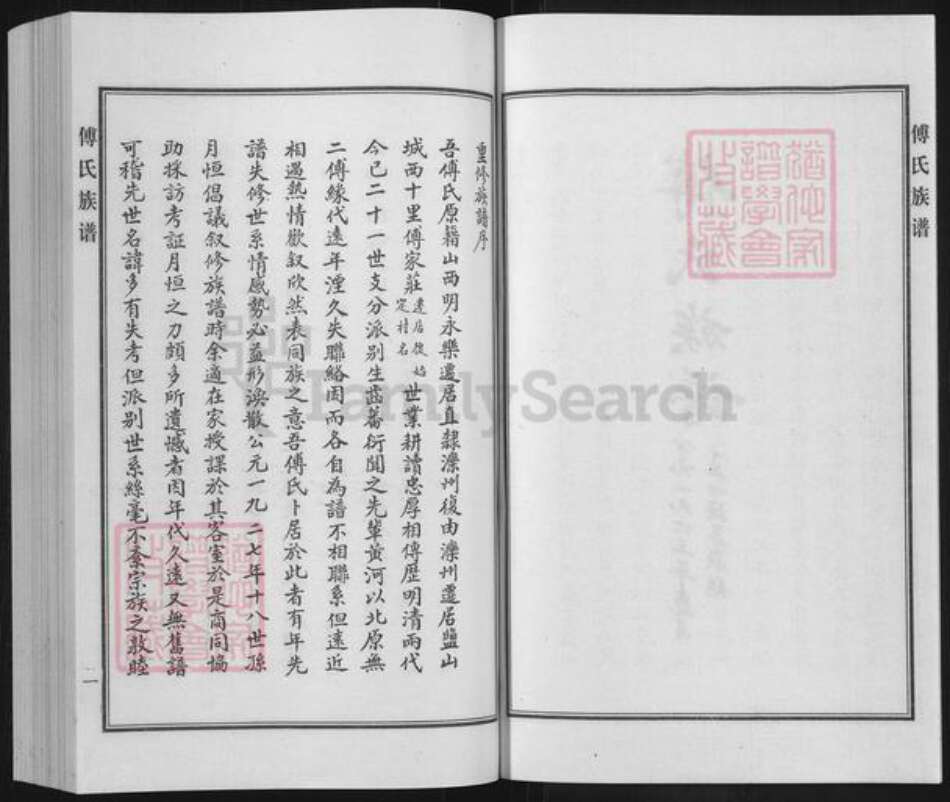 傅氏族谱
重修族譜序
吾傅氏原籍山西明永樂遷居直隸灤州復由灤州遷居鹽山
城西十里傅家莊遷居後始定村名世業耕讀忠厚相傳歷明清兩代
今已二十一世支分派别生齒蕃衍聞之先輩黄河以北原無
二傅緣代遠年湮久失聯絡因而各自為譜不相聯系但遠近
相遇熱情歡叙欣然表同族之意吾傅氏卜居於此者有年先
譜失修世系情感勢必益形渙散公元一九二七年十八世孫
月恒倡議叙修族譜時余適在家授課於其客室於是商同協
助採訪考証月恒之力頗多所遺憾者因年代久遠又無舊譜
可稽先世名諱多有失考但派别世系絲毫不紊宗族之敦睦
傅氏族谱
一
FamilySearch